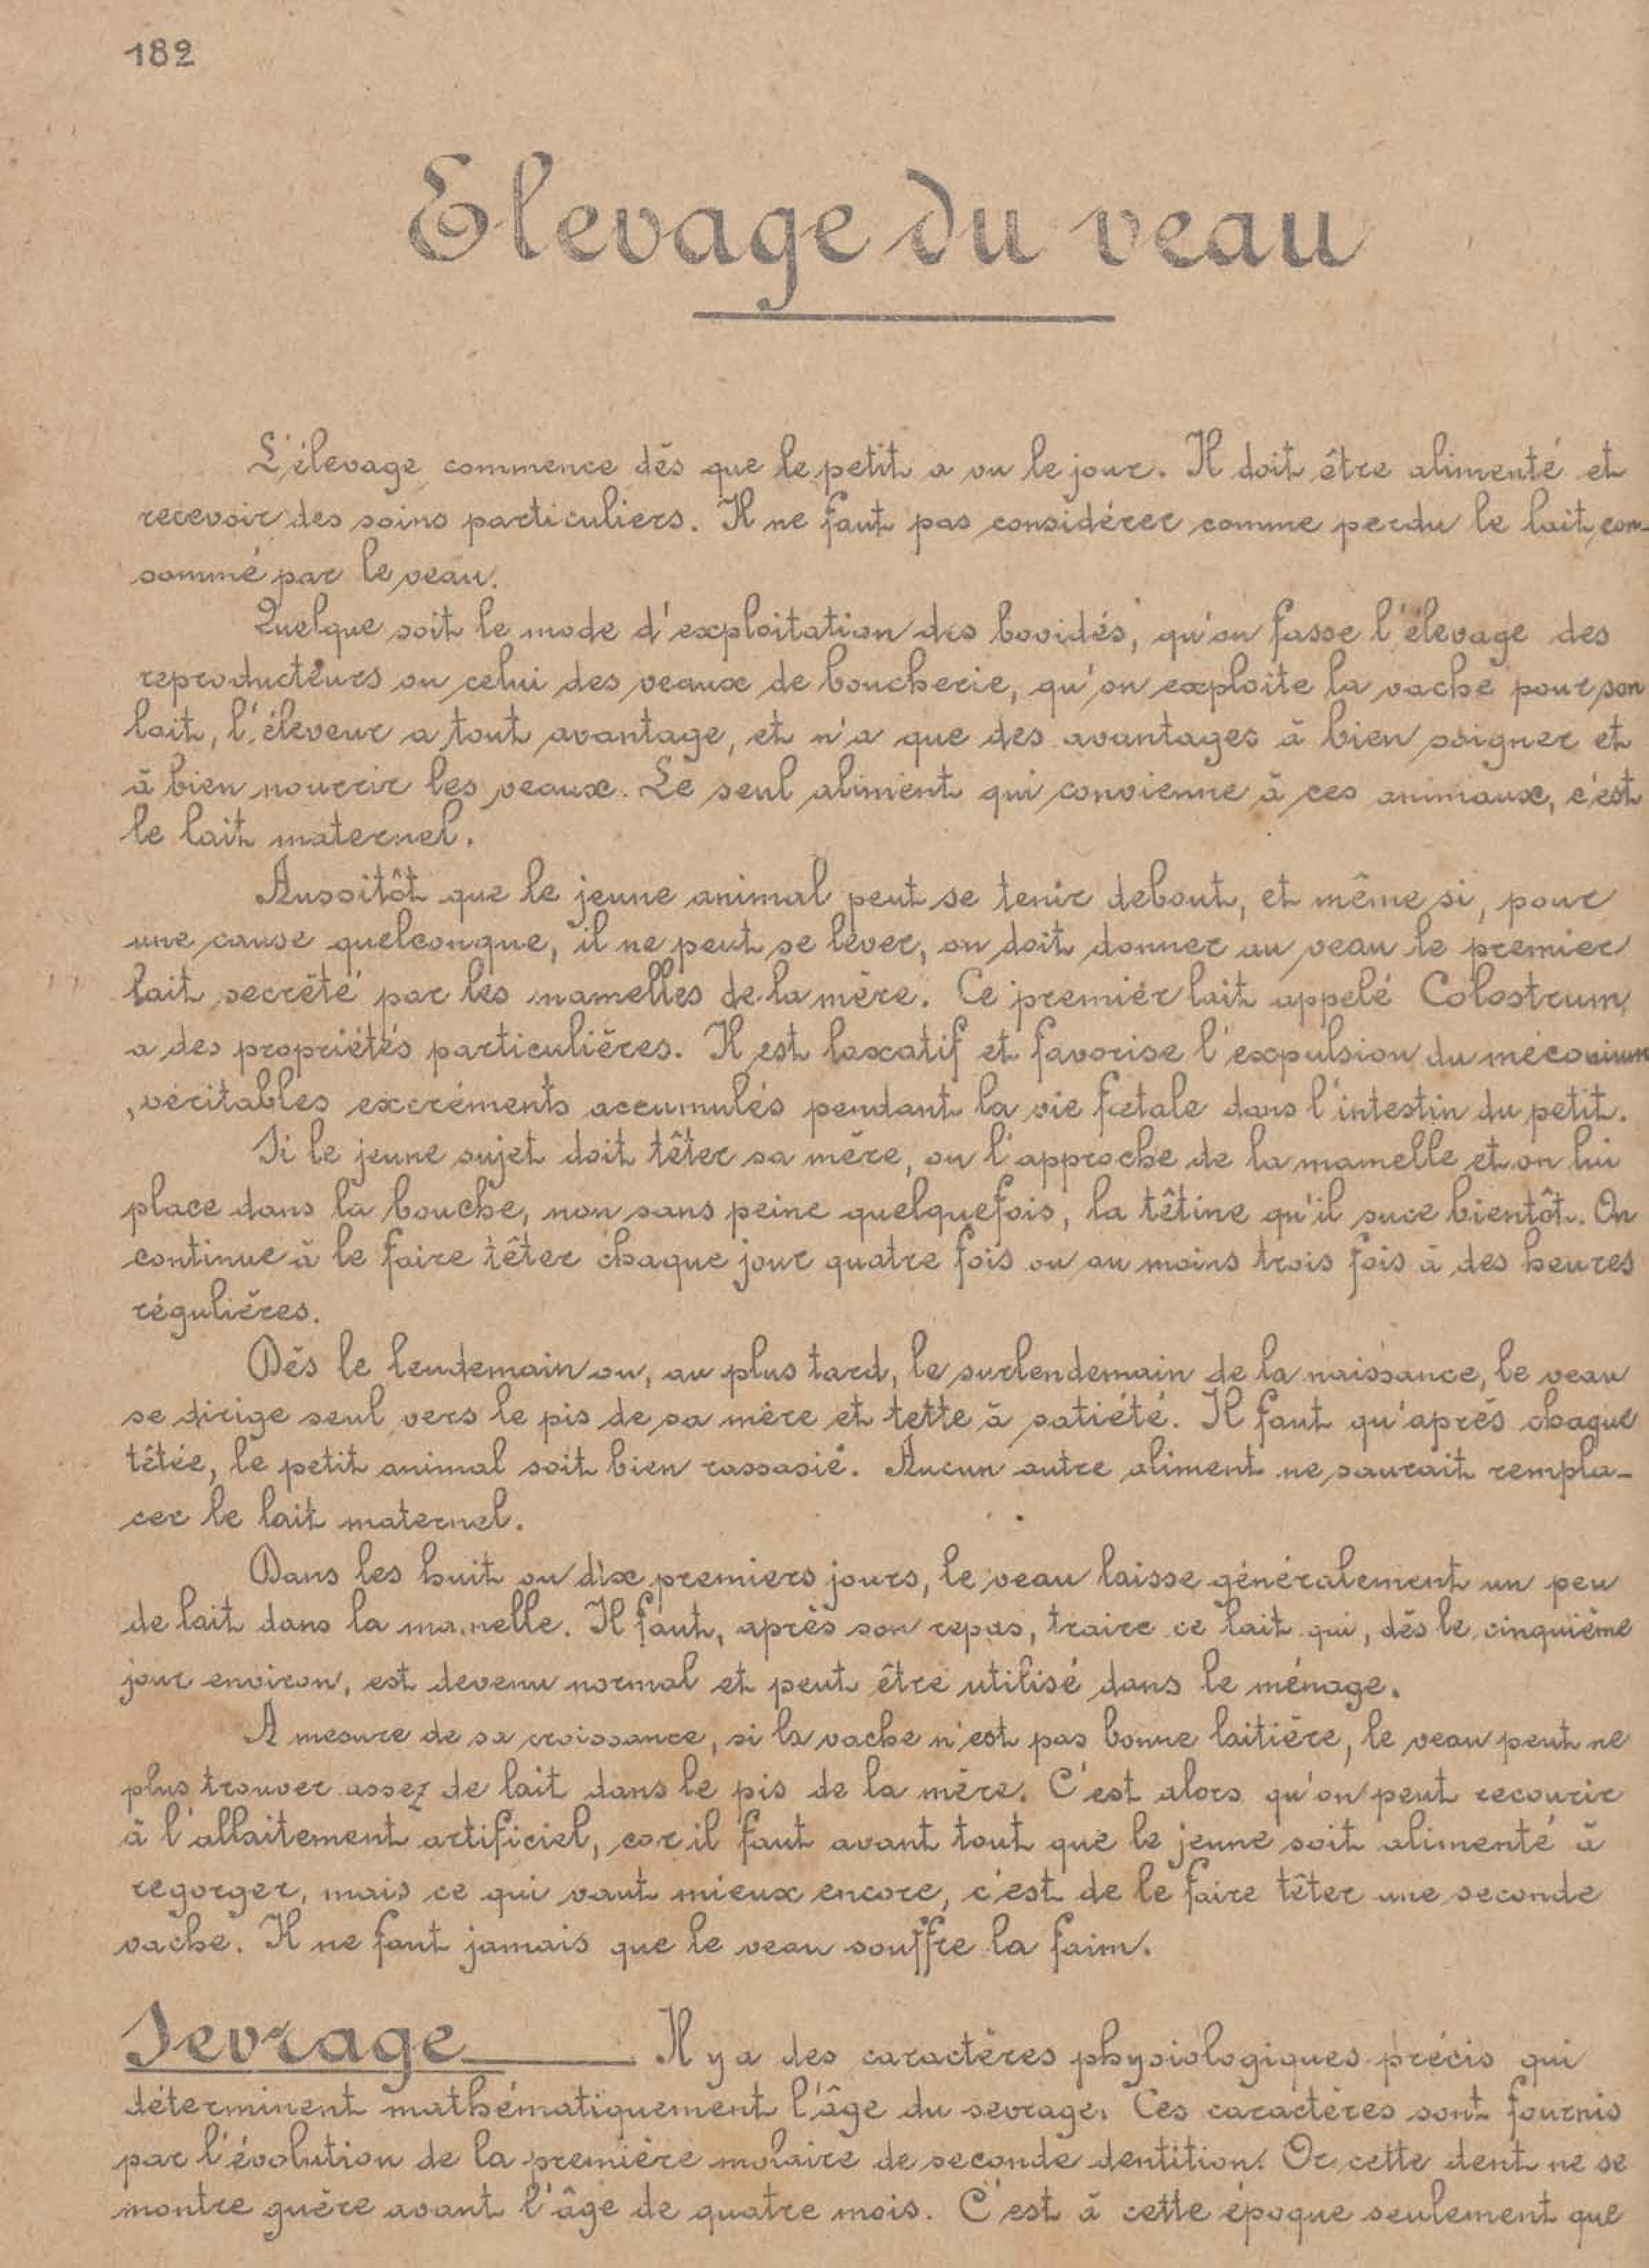 182
Elevage du veau
L'élevage commence dès que le petit a vu le jour. Il doit être alimenté et
recevoir des soins particuliers. Il ne faut pas considérer comme perdu le lait con-
sommé par le veau.
Quelque soit le mode d'exploitation des bovidés, qu'on fasse l'élevage des
reproducteurs ou celui des veaux de boucherie, qu'on exploite la vache pour son
lait, l'éleveur a tout avantage, et n'a que des avantages à bien soigner et
à bien nourrir les veaux. Le seul aliment qui convienne à ces animaux, c'est
le lait maternel.
Aussitôt que le jeune animal peut se tenir debout, et même si, pour
une cause quelconque, il ne peut se lever, on doit donner au veau le premier
lait secrété par les mamelles de la mère. Ce premier lait appelé Colostrum,
a des propriétés particulières. Il est laxatif et favorise l'expulsion du
, véritables excréments accumulés pendant la vie fœtale dans l'intestin du petit.
Si le jeune sujet doit têter sa mère, on l'approche de la mamelle et on lui
place dans la bouche, non sans peine quelquefois, la têtine qu'il suce bientôt. On
continue à le faire têter chaque jour quatre fois ou au moins trois fois à des heures
régulières.
Dès le lendemain ou, au plus tard, le surlendemain de la naissance, le veau
se dirige seul vers le pis de sa mère et tette à satiété. Il faut qu'après chaque
têtée, le petit animal soit bien rassasié. Aucun autre aliment ne saurait rempla-
cer le lait maternel.
Dans les huit ou dix premiers jours, le veau laisse généralement un peu
de lait dans la mamelle. Il faut, après son repas, traire ce lait qui, dès le cinquième
jour environ, est devenu normal et peut être utilisé dans le ménage.
A mesure de sa croissance, si la vache n'est pas bonne laitière, le veau peut ne
plus trouver assez de lait dans le pis de la mère. C'est alors qu'on peut recourir
à l'allaitement artificiel, car il faut avant tout que le jeune soit alimenté à
regorger, mais ce qui vaut mieux encore, c'est de le faire têter une seconde
vache. Il ne faut jamais que le veau souffre la faim.
Sevrage Il y a des caractères physiologiques précis qui
déterminent mathématiquement l'âge du sevrage. Ces caractères sont fournis
par l'évolution de la première molaire de seconde dentition. Or cette dent ne se
montre guère avant l'âge de quatre mois. C'est à cette époque seulement que